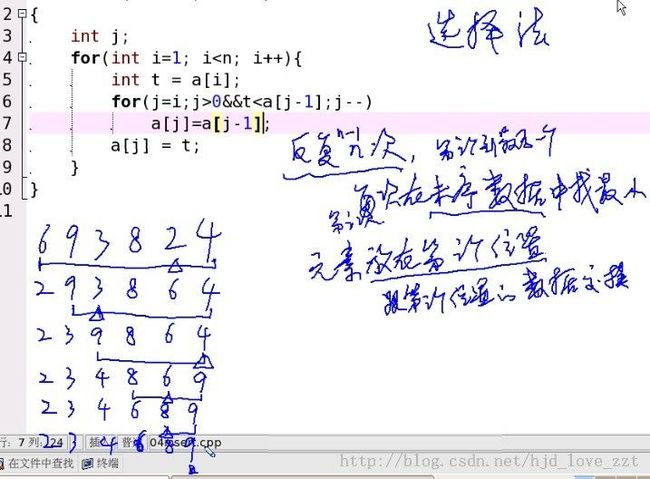 2 {
3 int j;
4 for(int i=1; i<n; i++){
5 int t = a[i];
6 for(j=i;j>0&&t<a[j-1];j--)
7 a[j]=a[j-1];
8 a[j] = t;
9 }
10 }
11
选择法
反复n-1次,
在未序数据中找最小
元素放在第i个位置
跟第i个位置的数据交换
6 9 3 8 2 4
2 9 3 8 6 4
2 3 9 8 6 4
2 3 4 8 6 9
2 3 4 6 8 9
2 3 4 6 8 9
行: 7 列: 24 插 普 04 .cpp
在文件中查找 终端
http://blog.csdn.net/hjd_love_zzt